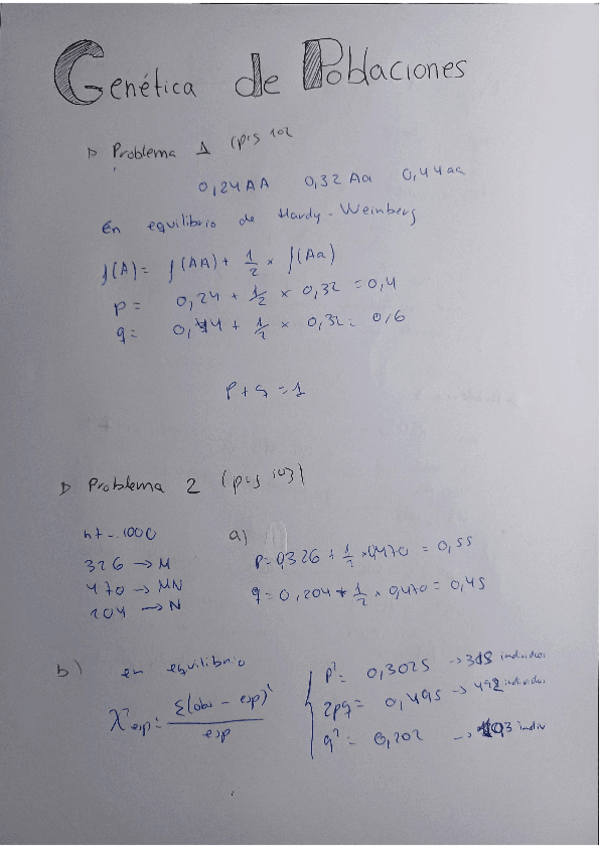 Genética de Poblaciones
▷ Problema 1 (pag 102
0,24 AA 0,32 Aa 0,44 aa
En equilibrio de Hardy-Weinberg
f(A) = f(AA) + 1/2 × f(Aa)
p = 0,24 + 1/2 × 0,32 = 0,4
q = 0,44 + 1/2 × 0,32 = 0,6
p + q = 1
▷ Problema 2 (pag 103)
nt = 1000
326 → M
470 → MN
204 → N
a)
p = 0,326 + 1/2 × 0,470 = 0,55
q = 0,204 + 1/2 × 0,470 = 0,45
b) en equilibrio
χ²exp = Σ(obs - esp)² / esp
p² = 0,3025 → individuos
2pq = 0,495 → individuos
q² = 0,202 → indiv